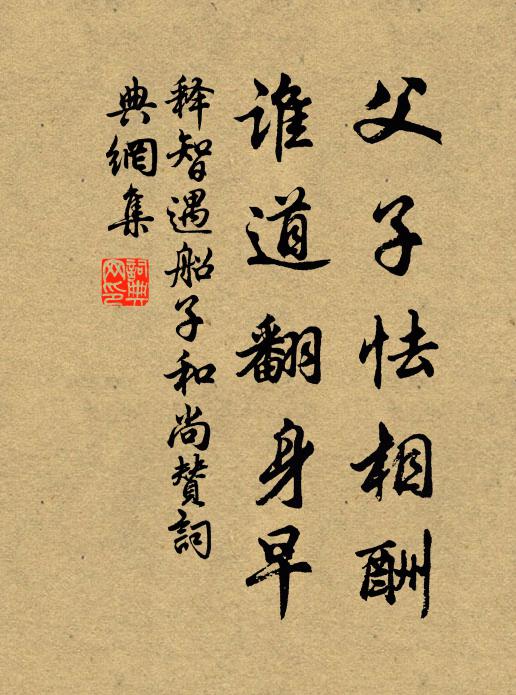 父子怯相酬
谁道翻身早
释智遇船子和尚赞詞
典網集
詞典网印